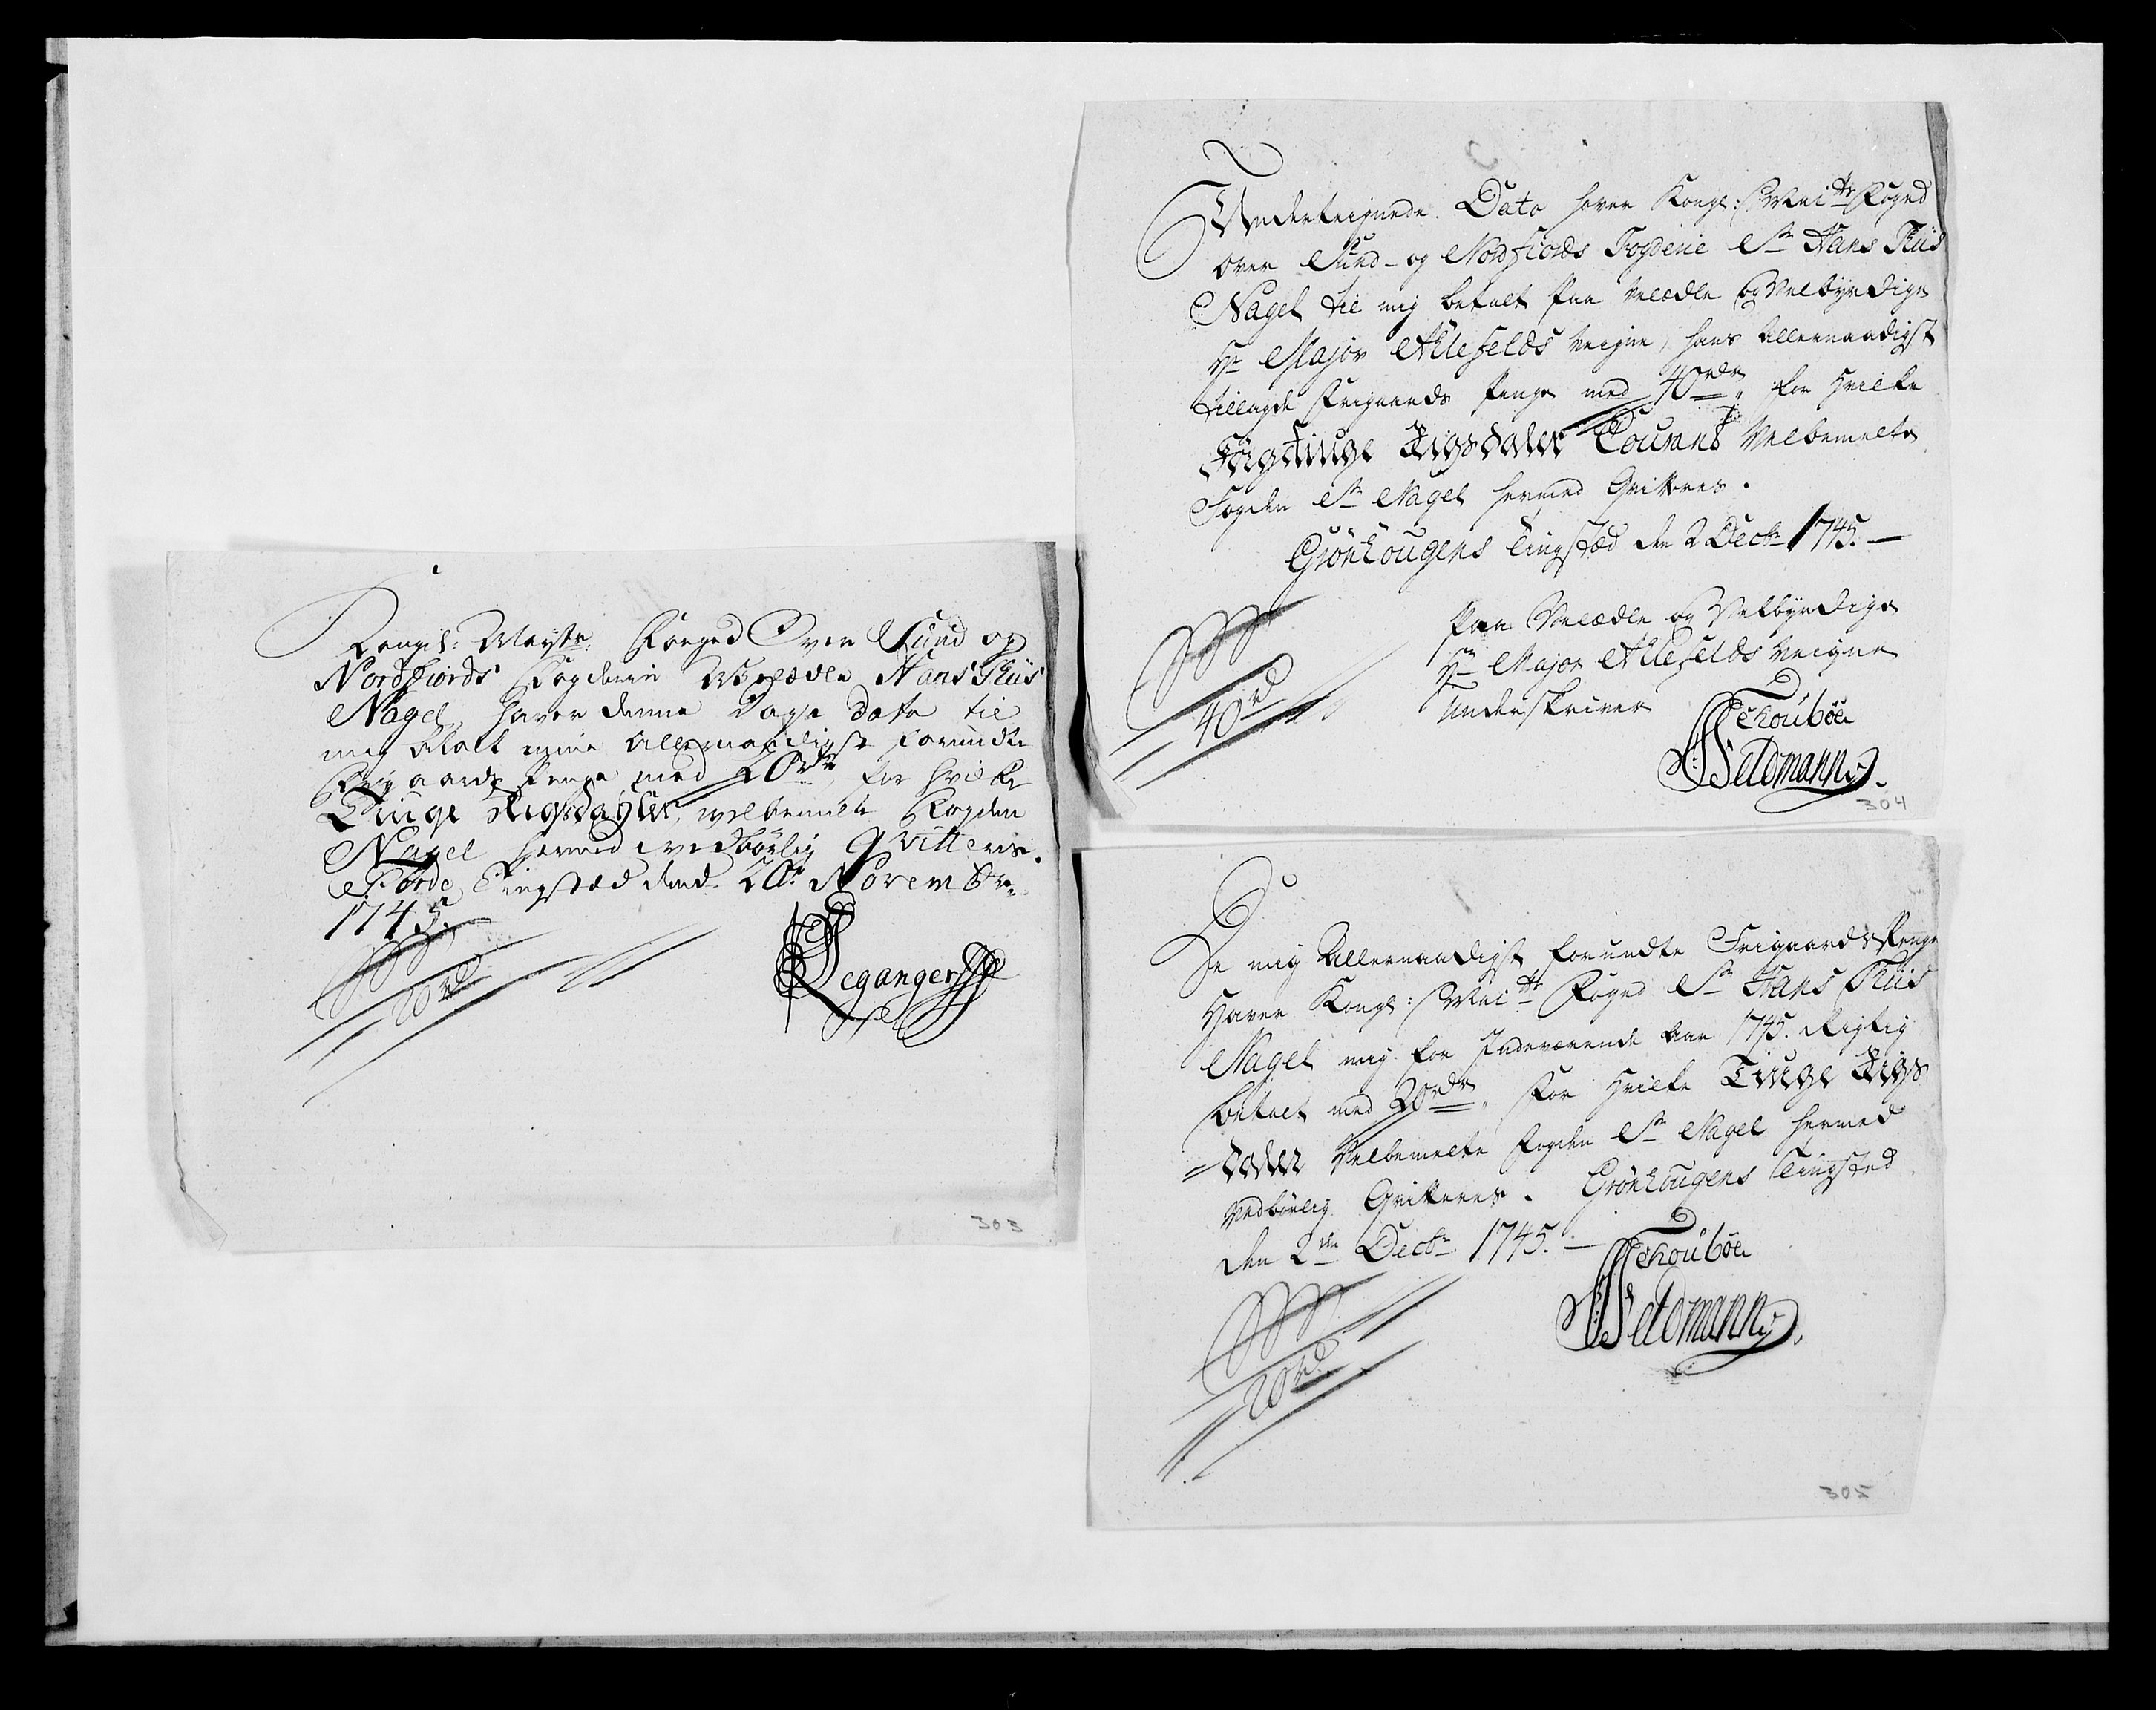 Kongel: Mayts: Foeged Over Sund og
Nordfiords Fogderie Velædle Hans Thiis
Nagel, haver denne Dags dato til
mig betalt mine allernaadigst forundte
Frygaards Penge med 20rdr for hvilke
Tiuge Rigsdahler, velbemelte Fogden
Nagel hermed vedbørlig qvitteris.
Førde Tingsted dend 20de Novembr:
1745.
20rd
Leganger
303
Underteignede Dato haver Kongl: Mai:ts Foged
over Sund- og Nordfiords Fogderie Sr Hans Thiis
Nagel til mig betalt paa Velædle og Velbyrdige
Hr Major Ahlefelds Veigne, hans Allernaadigst
tillagde Friegaards Penge med 40rdr, for Hvilke
Förgetiuge Rigsdaler Courant Velbemelte
Fogden Sr Nagel hermed Qvitteres.
Grönhougens Tingsted den 2 Decbr 1745.
Paa Velædle og Velbyrdige
Hr Major Ahlefelds Veigne
Underskriver
Schouboe
Seldmann
40rd
304
De mig Allernaadigst forundte Frigaards Penge
Haver Kongl: Mai:ts Foged Sr Hans Thiis
Nagel mig for Indeværende Aar 1745. Rigtig
betalt med 20rdr, For Hvilke Tiuge Rigs-
daler Velbemelte Fogden Sr Nagel hermed
Vedbörlig Qvitteres. Grönhougens Tingsted
den 2den Decbr 1745.
Schouboe
Seldmann
20rd
305